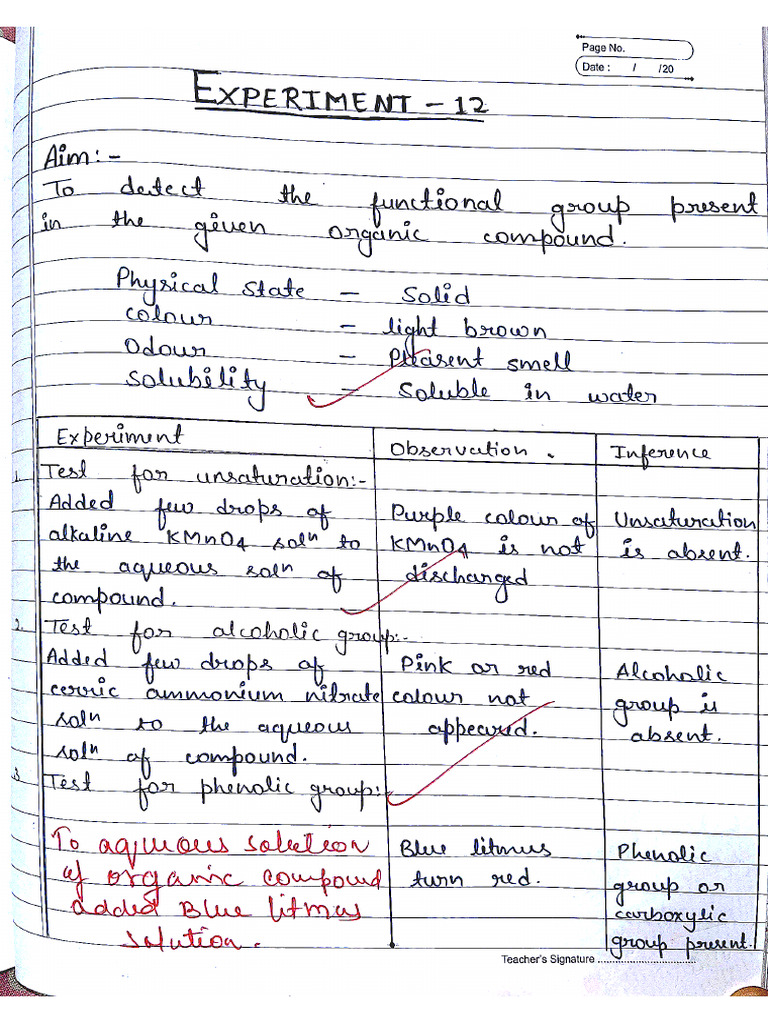 Page No.
Date : / /20
EXPERIMENT - 12
Aim:-
To detect the functional group present
in the given organic compound.
Physical State - Solid
colour - light brown
Odour - Pleasent smell
Solubility - Soluble in water
Experiment Observation. Inference
1. Test for unsaturation:-
Added few drops of Purple colour of Unsaturation
alkaline KMnO4 solⁿ to KMnO4 is not is absent.
the aqueous solⁿ of discharged
compound.
2. Test for alcoholic group:-
Added few drops of Pink or red Alcoholic
cerric ammonium nitrate colour not group is
solⁿ to the aqueous appeared. absent.
solⁿ of compound.
3. Test for phenolic group:-
To aqueous solution Blue litmus Phenolic
of organic compound turn red. group or
added Blue litmus carboxylic
solution. group present.
Teacher's Signature